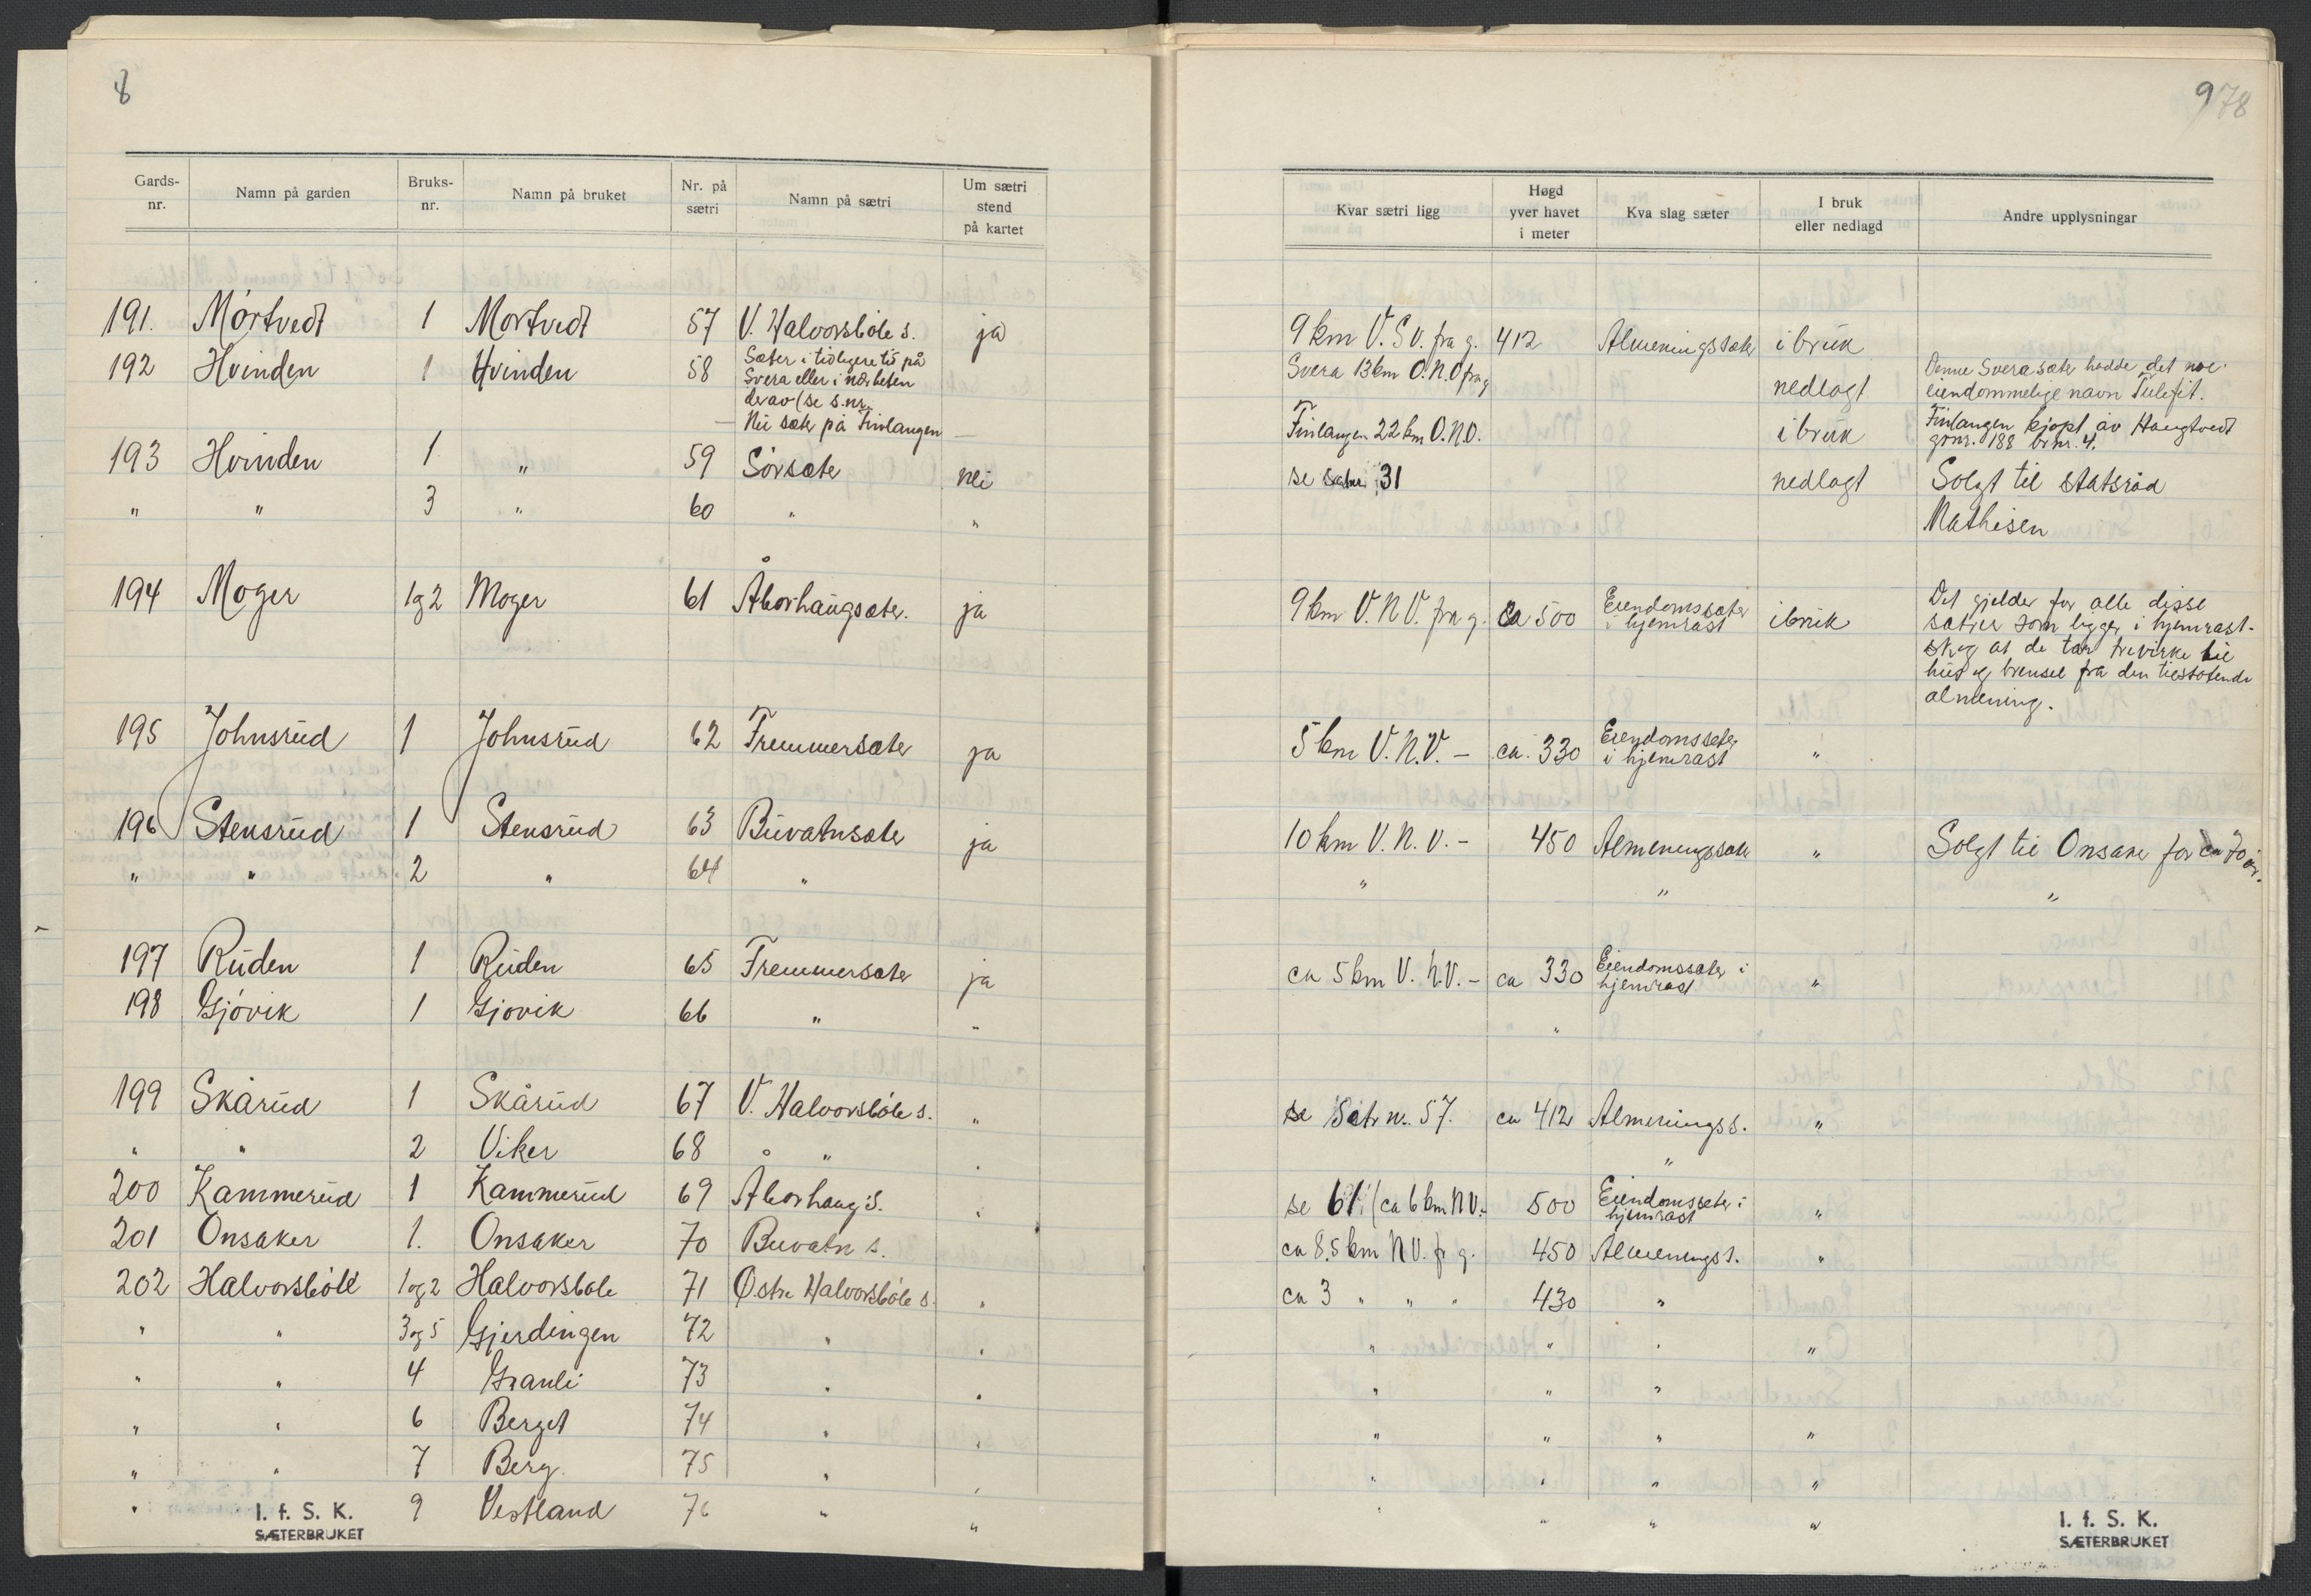 8
Gards-nr. Namn på garden Bruks-nr. Namn på bruket Nr. på sætri Namn på sætri Um sætri stend på kartet
191. Mørtvedt 1 Mørtvedt 57 V. Halvorsbøle s. ja
192 Hvinden 1 Hvinden 58 Sæter i tidligere tid på
Svera eller i nærheten
derav (se s.nr.
— Nu sæter på Finlangen —
193 Hvinden 1 " 59 Sørsæter nei
" " 3 " 60 " "
194 Moger 1 og 2 Moger 61 Åborhaugsæter. ja
195 Johnsrud 1 Johnsrud 62 Fremmersæter ja
196 Stensrud 1 Stensrud 63 Buvatnsæter ja
" " 2 " 64 "
197 Ruden 1 Ruden 65 Fremmersæter ja
198 Gjøvik 1 Gjøvik 66 " "
199 Skårud 1 Skårud 67 V. Halvorsbøle s. "
" " 2 Viker 68 " "
200 Kammerud 1 Kammerud 69 Åborhaug s. "
201 Onsaker 1. Onsaker 70 Buvatn s.
202 Halvorsbøle 1 og 2 Halvorsbøle 71 Østre Halvorsbøle s. "
" " 3 og 5 Gjerdingen 72 " "
" " 4 Granli 73 " "
" " 6 Berget 74 " "
" " 7 Berg. 75 " "
" 9 Vestland 76 " "
I. f. S. K.
SÆTERBRUKET
9 78
Kvar sætri ligg Høgd yver havet i meter Kva slag sæter I bruk eller nedlagd Andre upplysningar
9 km V.S.V. fra g. 412 Almeningssæter i bruk
Svera 13 km O.N.O fra g nedlagt Denne Sverasæter hadde det noe
eiendommelige navn Tulefit.
Finlangen 22 km O.N.O. i bruk Finlangen kjøpt av Haugtvedt
gdnr. 188 brnr. 4.
se sæter 31 nedlagt Solgt til statsråd
Mathisen
9 km V.N.V. fra g. ca 500 Eiendomssæter
i hjemrast i bruk Det gjelder for alle disse
sætrer som ligger i hjemrast-
skog at de tar trevirke til
hus og brensel fra den tilstøtende
almening.
5 km V.N.V. — ca. 330 Eiendomssæter
i hjemrast "
10 km V.N.V. — 450 Almeningssæter " Solgt til Onsaker for ca 70 år.
" " "
ca 5 km V.N.V. — ca 330 Eiendomssæter i
hjemrast "
"
se Sætr nr. 57. ca 412 Almenings s. "
"
se 61. (ca 6 km NV. 500 Eiendomssæter i
hjemrast "
ca 8.5 km NV. fr g. 450 Almenings s. "
ca 3 " " " 430 "
" " " "
" " "
" " " "
" " " "
" " " "
I. f. S. K.
SÆTERBRUKET